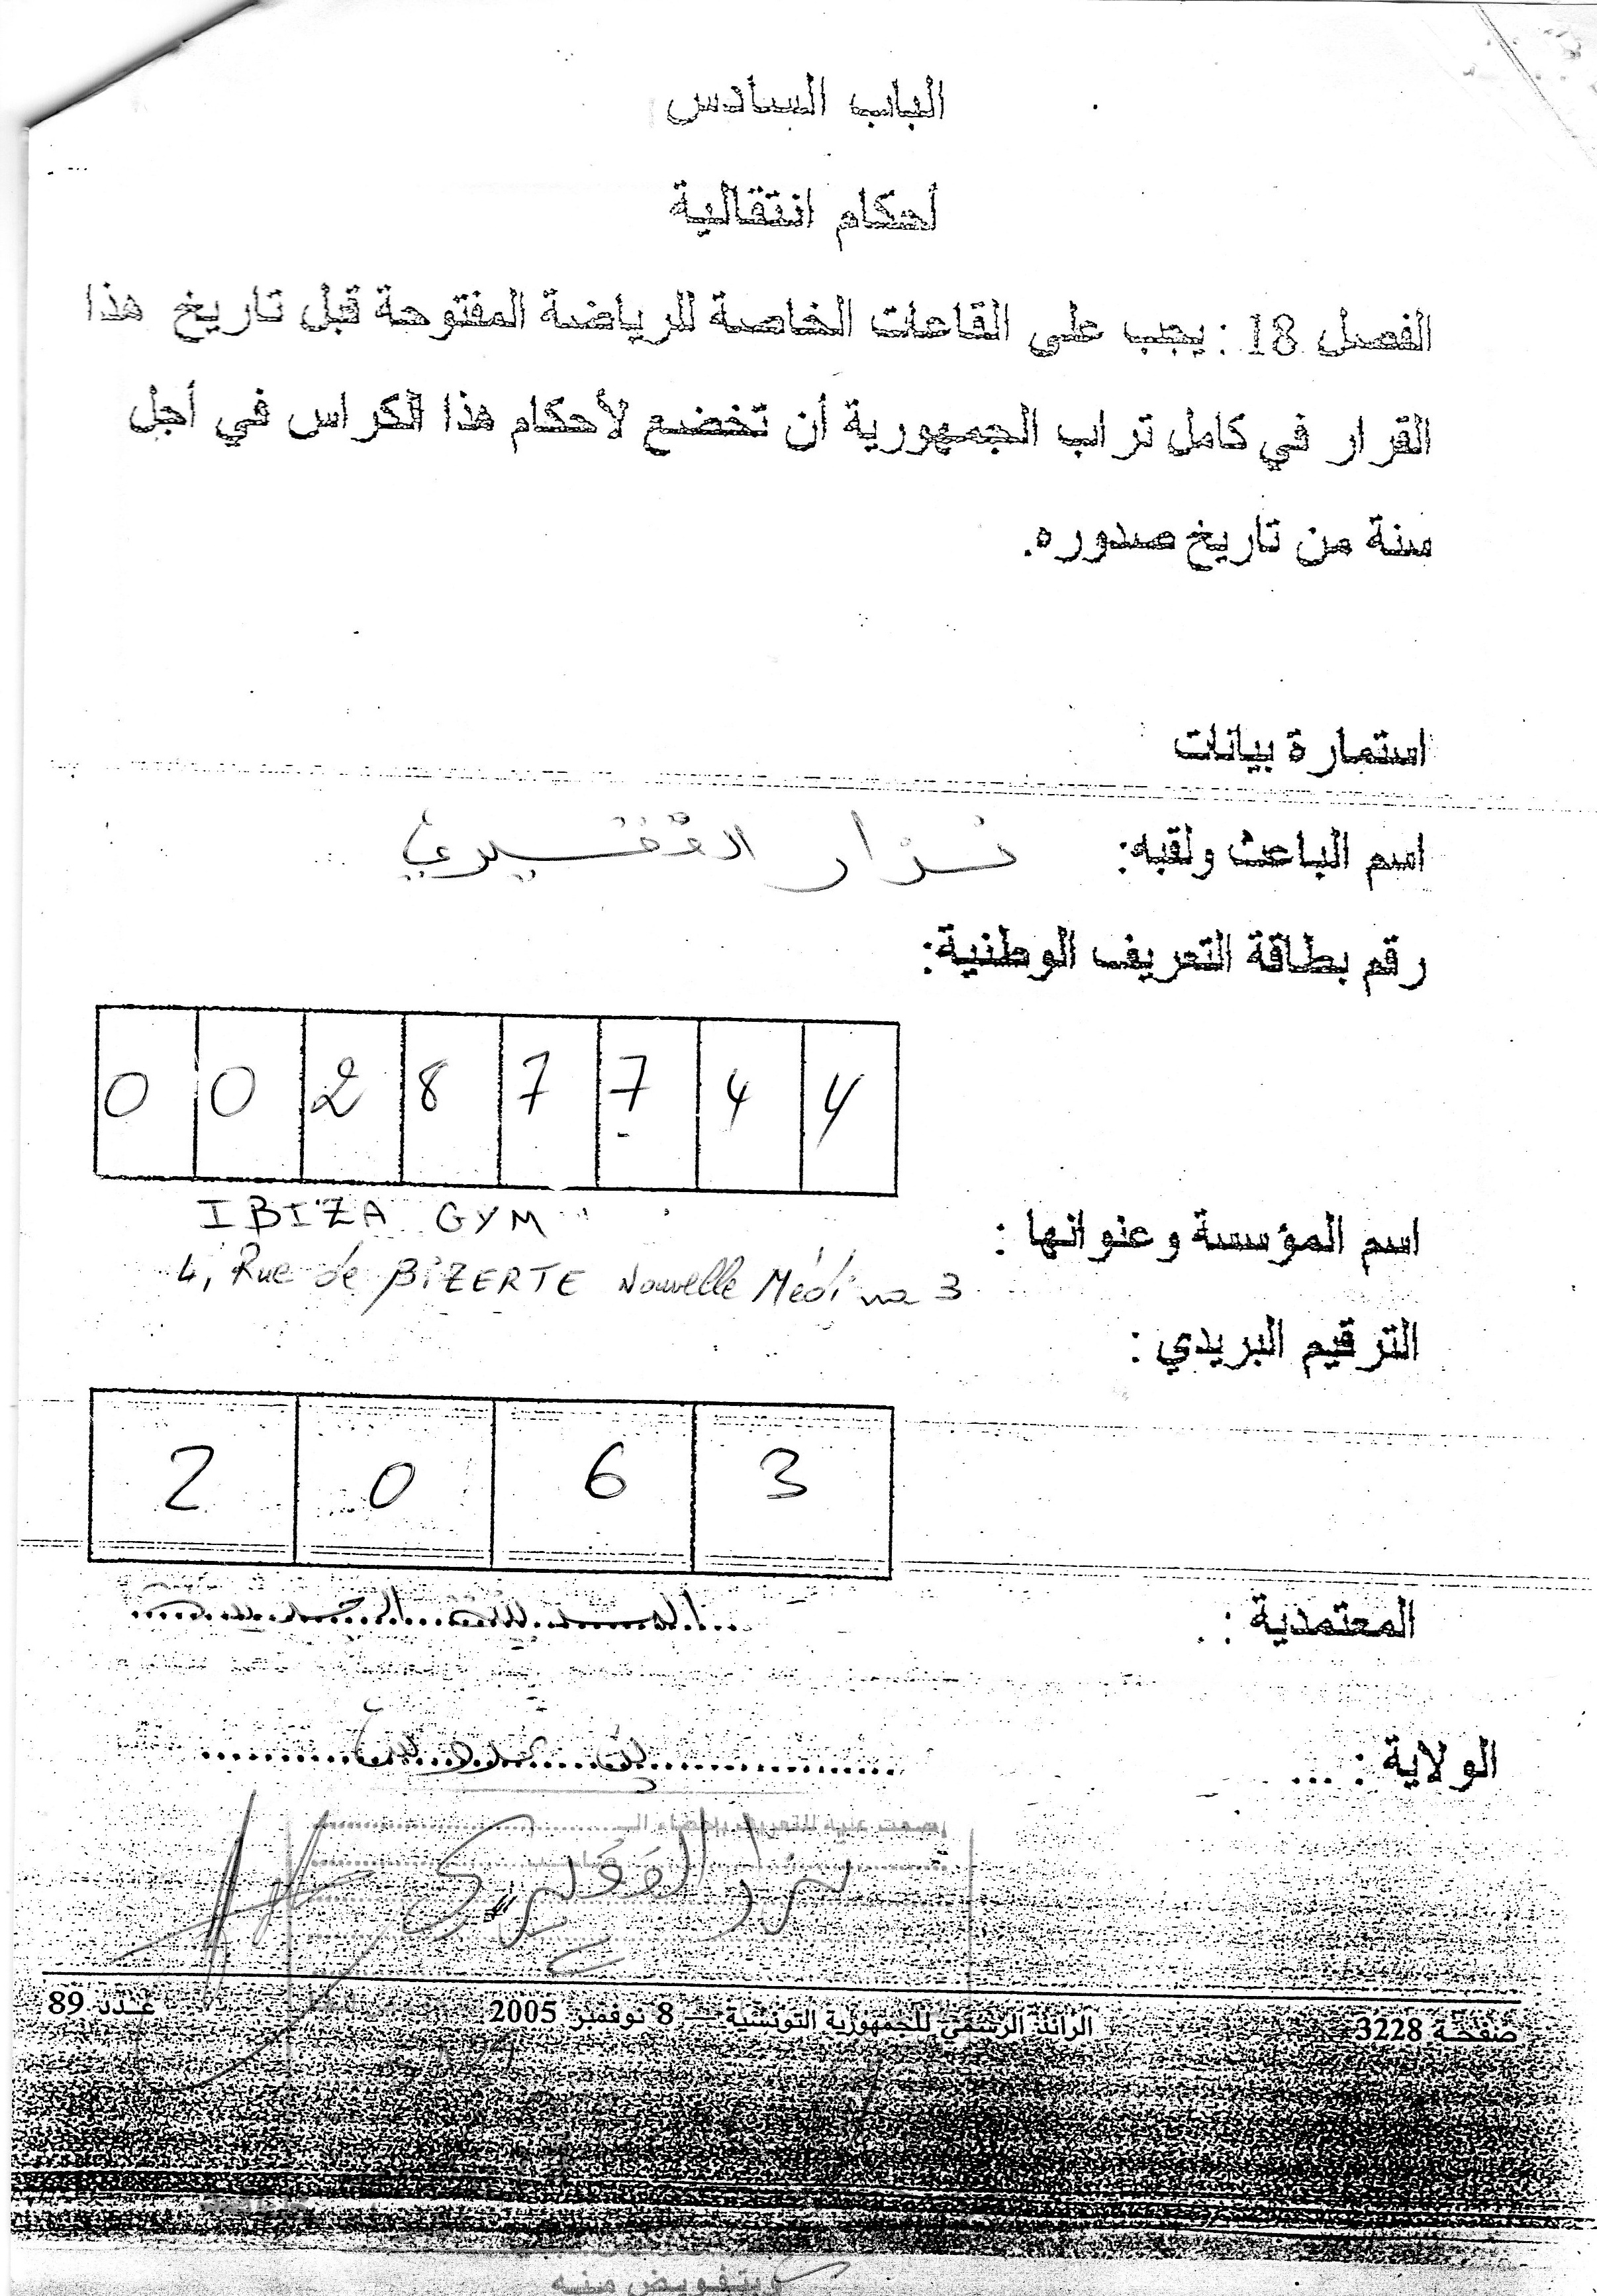 الباب السادس
أحكام انتقالية
الفصل 18 : يجب على القاعات الخاصة للرياضة المفتوحة قبل تاريخ هذا
القرار في كامل تراب الجمهورية أن تخضع لأحكام هذا الكراس في أجل
سنة من تاريخ صدوره.
استمارة بيانات
اسم الباعث ولقبه: نزار القفيري
رقم بطاقة التعريف الوطنية:
0 0 2 8 7 7 4 4
اسم المؤسسة وعنوانها : IBIZA GYM
4, Rue de BIZERTE Nouvelle Médina 3
الترقيم البريدي :
2 0 6 3
المعتمدية : المدينة الجديدة
الولاية : ... بن عروس
نزار القفيري
صفحة 3228 الرائد الرسمي للجمهورية التونسية — 8 نوفمبر 2005 عدد 89
وبتفويض منه